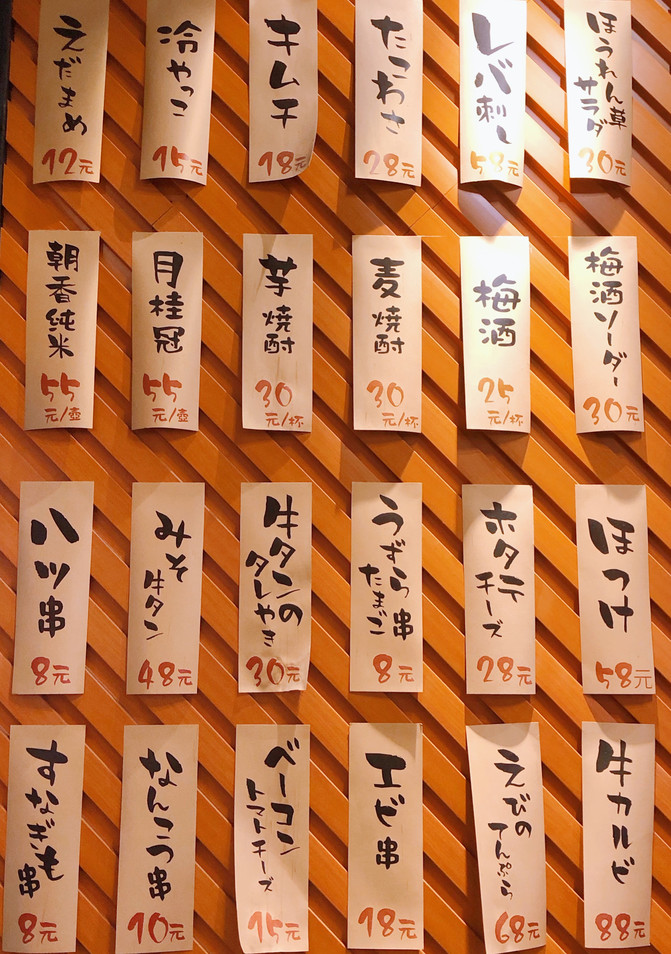 えだまめ
12元
冷やっこ
15元
キムチ
18元
たこわさ
28元
レバ刺し
58元
ほうれん草
サラダ
30元
朝香純米
55
元/壺
月桂冠
55
元/壺
芋焼酎
30
元/杯
麦焼酎
30
元/杯
梅酒
25
元/杯
梅酒ソーダー
30元
八ツ串
8元
みそ
牛タン
48元
牛タンの
タレやき
30元
うずら串
たまご
8元
ホタテ
チーズ
28元
ほっけ
58元
すなぎも
串
8元
なんこつ串
10元
ベーコン
トマトチーズ
15元
エビ串
18元
えびの
てんぷら
68元
牛カルビ
88元